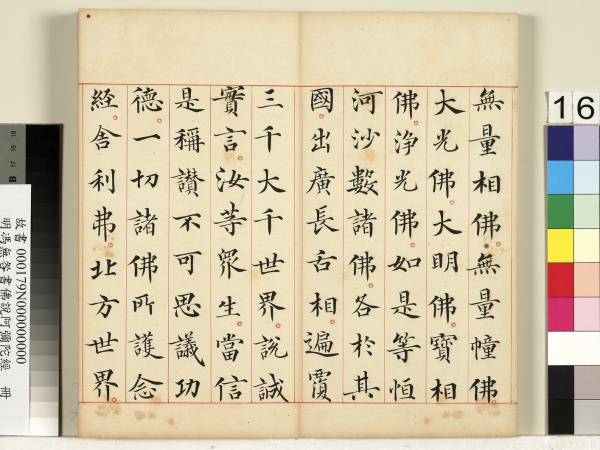 無量相佛。無量幢佛。
大光佛。大明佛。寶相
佛。淨光佛。如是等恒
河沙數諸佛。各於其
國。出廣長舌相。遍覆
三千大千世界。說誠
實言。汝等眾生。當信
是稱讚不可思議功
德。一切諸佛所護念
經。舍利弗。北方世界。
16
B
故書000179N000000000
明馮無咎書佛說阿彌陀經 冊